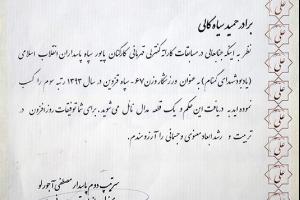 برادر حمید سیاه کالی
نظر به اینکه جنابعالی در مسابقات کاراته کنترلی قهرمانی کارکنان پایور سپاه پاسداران انقلاب اسلامی
(یادواره شهدای گمنام) به عنوان ورزشکار وزن ۶۷- سپاه قزوین در سال ۱۳۹۳ رتبه سوم را کسب
نموده اید به دریافت این حکم و یک قطعه مدال نائل می شوید. برای شما توفیقات روزافزون در
تربیت و رشد ابعاد معنوی و جسمانی را آرزومندم.
سرتیپ دوم پاسدار مصطفی آجورلو